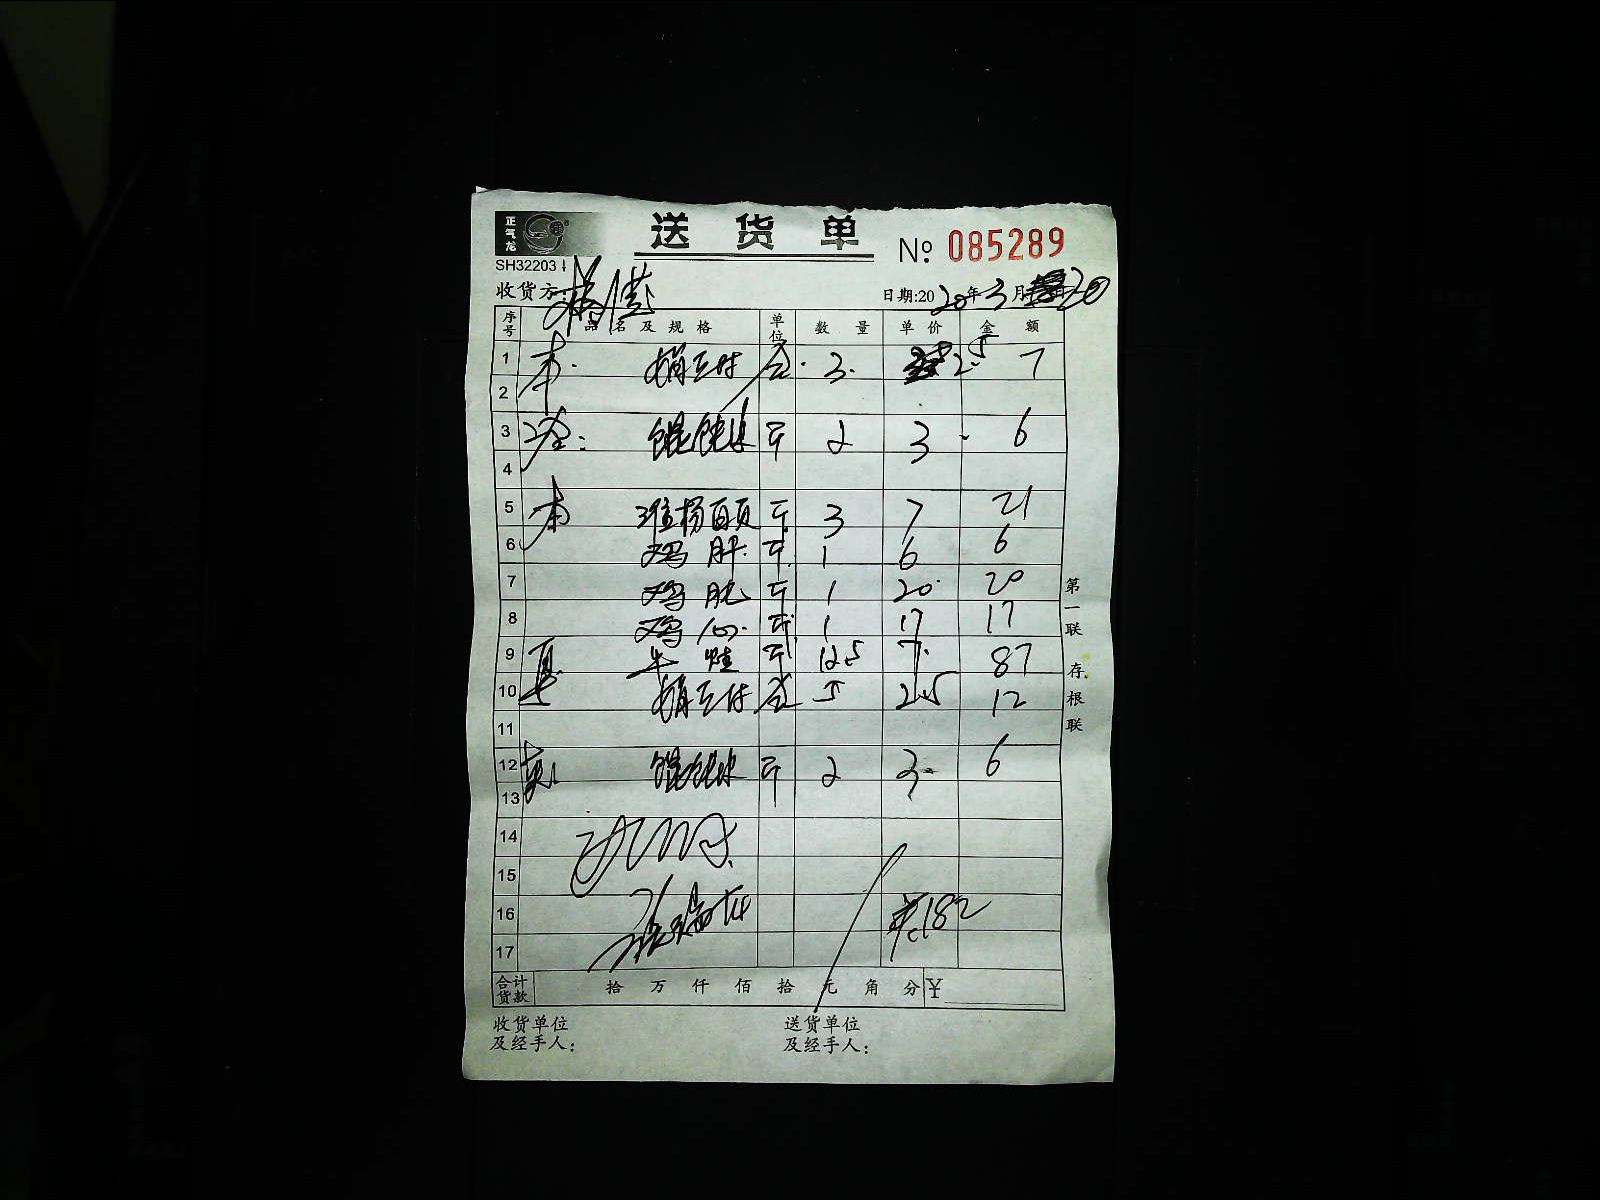 正气龙
送货单 № 085289
SH32203
收货方: 日期:2020年3月20
序号 品名及规格 单位 数量 单价 金额
1 本. 盒. 3. 2.5 7
2
3 馄饨皮 斤 2 3 6
4
5 本 淮扬百页 斤 3 7 21
6 鸡肝. 斤 1 6 6
7 鸡肫 斤 1 20 20
8 鸡心. 斤 1 17 17
9 牛 斤 12.5 7. 87
10 盒 5 2.5 12
11
12 馄饨皮 斤 2 3 6
13
14
15
16 182
17
合计货款 拾 万 仟 佰 拾 元 角 分 ¥
收货单位 送货单位
及经手人: 及经手人:
第一联 存根联